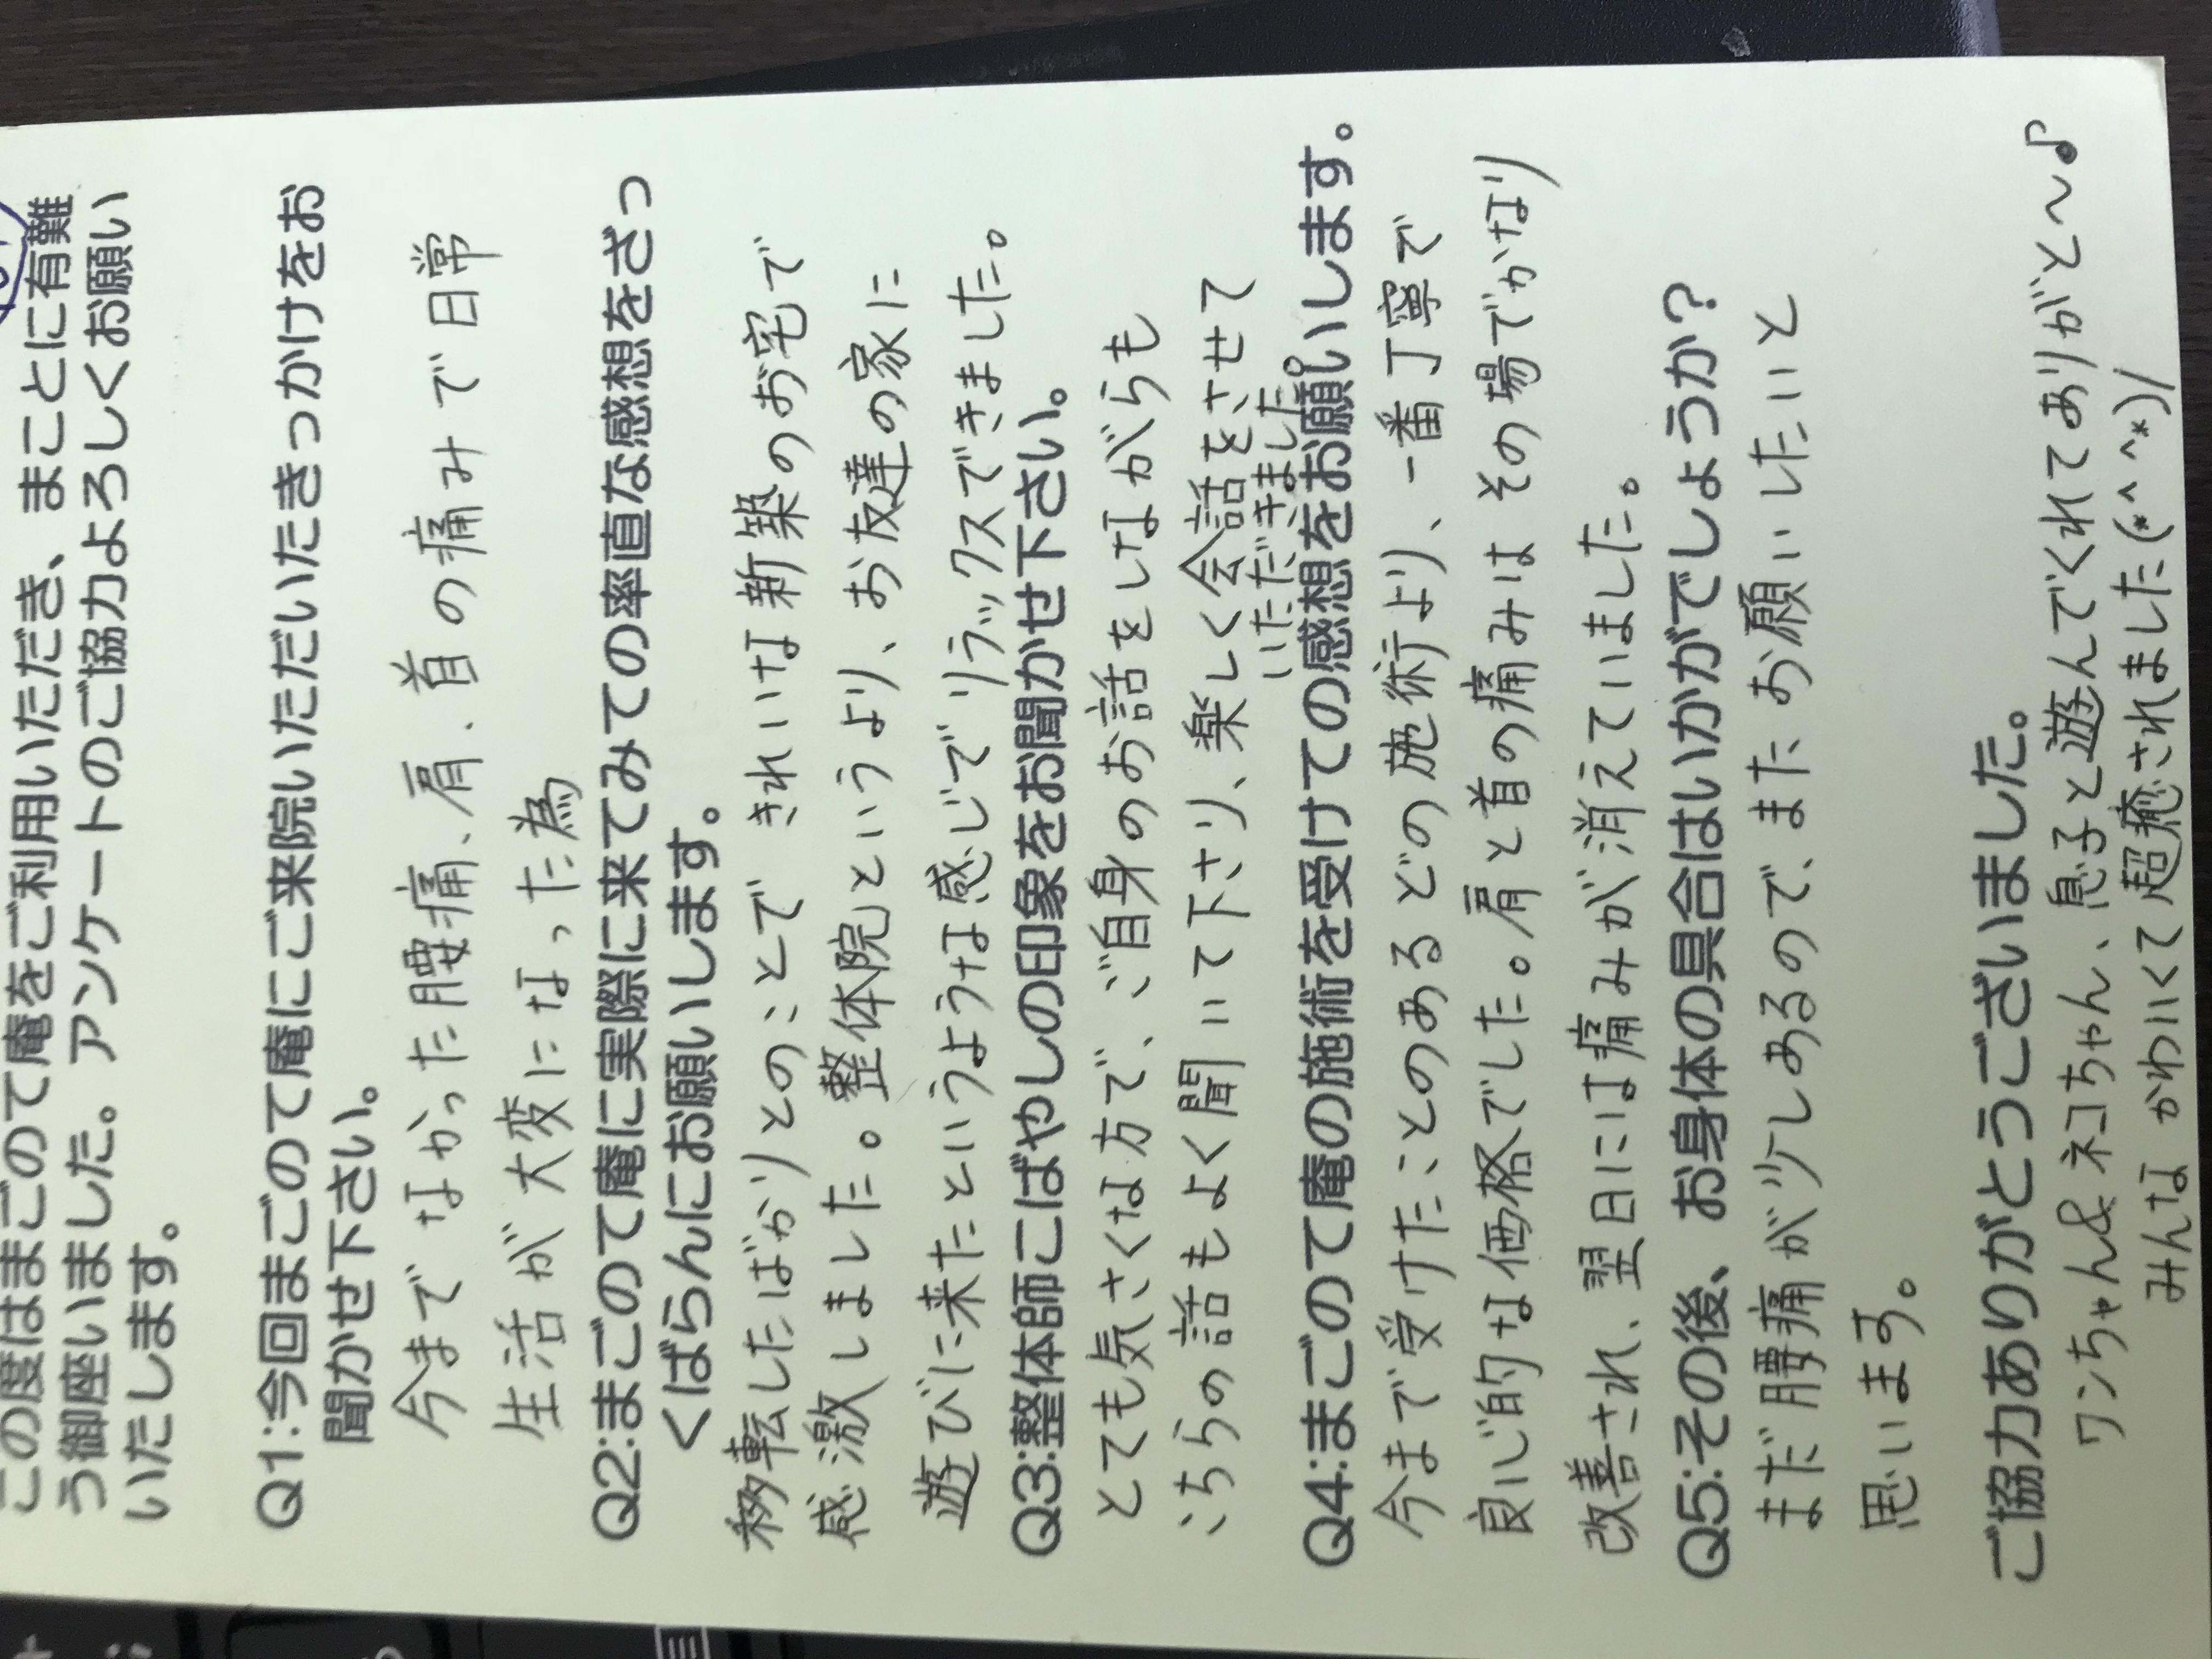 この度はまごのて庵をご利用いただき、まことに有難
う御座いました。アンケートのご協力よろしくお願い
いたします。
Q1:今回まごのて庵にご来院いただいたきっかけをお
聞かせ下さい。
今までなかった腰痛、肩、首の痛みで日常
生活が大変になった為
Q2:まごのて庵に実際に来てみての率直な感想をざっ
くばらんにお願いします。
移転したばかりとのことできれいな新築のお宅で
感激しました。整体院というより、お友達の家に
遊びに来たというような感じでリラックスできました。
Q3:整体師こばやしの印象をお聞かせ下さい。
とても気さくな方で、ご自身のお話をしながらも
こちらの話もよく聞いて下さり、楽しく会話をさせて
いただきました。
Q4:まごのて庵の施術を受けての感想をお願いします。
今まで受けたことのあるどの施術より、一番丁寧で
良心的な価格でした。肩と首の痛みはその場でかなり
改善され、翌日には痛みが消えていました。
Q5:その後、お身体の具合はいかがでしょうか?
まだ腰痛が少しあるので、またお願いしたいと
思います。
ご協力ありがとうございました。
ワンちゃん&ネコちゃん、息子と遊んでくれてありがと〜♪
みんなかわいくて超癒されました(*^^*)/